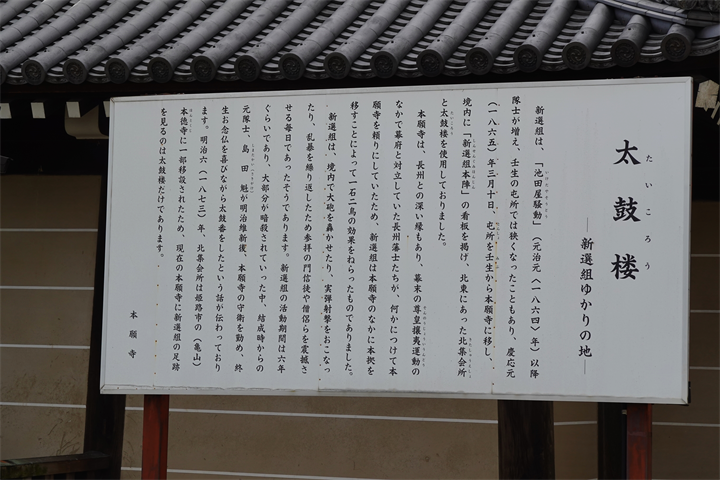 太鼓楼
たいころう
―新選組ゆかりの地―
新選組は、「池田屋騒動」（元治元（一八六四）年）以降
隊士が増え、壬生の屯所では狭くなったこともあり、慶応元
（一八六五）年三月十日、屯所を壬生から本願寺に移し、
境内に「新選組本陣」の看板を掲げ、北東にあった北集会所
と太鼓楼を使用しておりました。
本願寺は、長州との深い縁もあり、幕末の尊皇攘夷運動の
なかで幕府と対立していた長州藩士たちが、何かにつけて本
願寺を頼りにしていたため、新選組は本願寺のなかに本拠を
移すことによって一石二鳥の効果をねらったものでありました。
新選組は、境内で大砲を轟かせたり、実弾射撃をおこなっ
たり、乱暴を繰り返したため参拝の門信徒や僧侶らを震撼さ
せる毎日であったそうであります。新選組の活動期間は六年
ぐらいであり、大部分が暗殺されていった中、結成時からの
元隊士、島田魁が明治維新後、本願寺の守衛を勤め、終
生お念仏を喜びながら太鼓番をしたという話が伝わっており
ます。明治六（一八七三）年、北集会所は姫路市の（亀山）
本徳寺に一部移設されたため、現在の本願寺に新選組の足跡
を見るのは太鼓楼だけであります。
本願寺